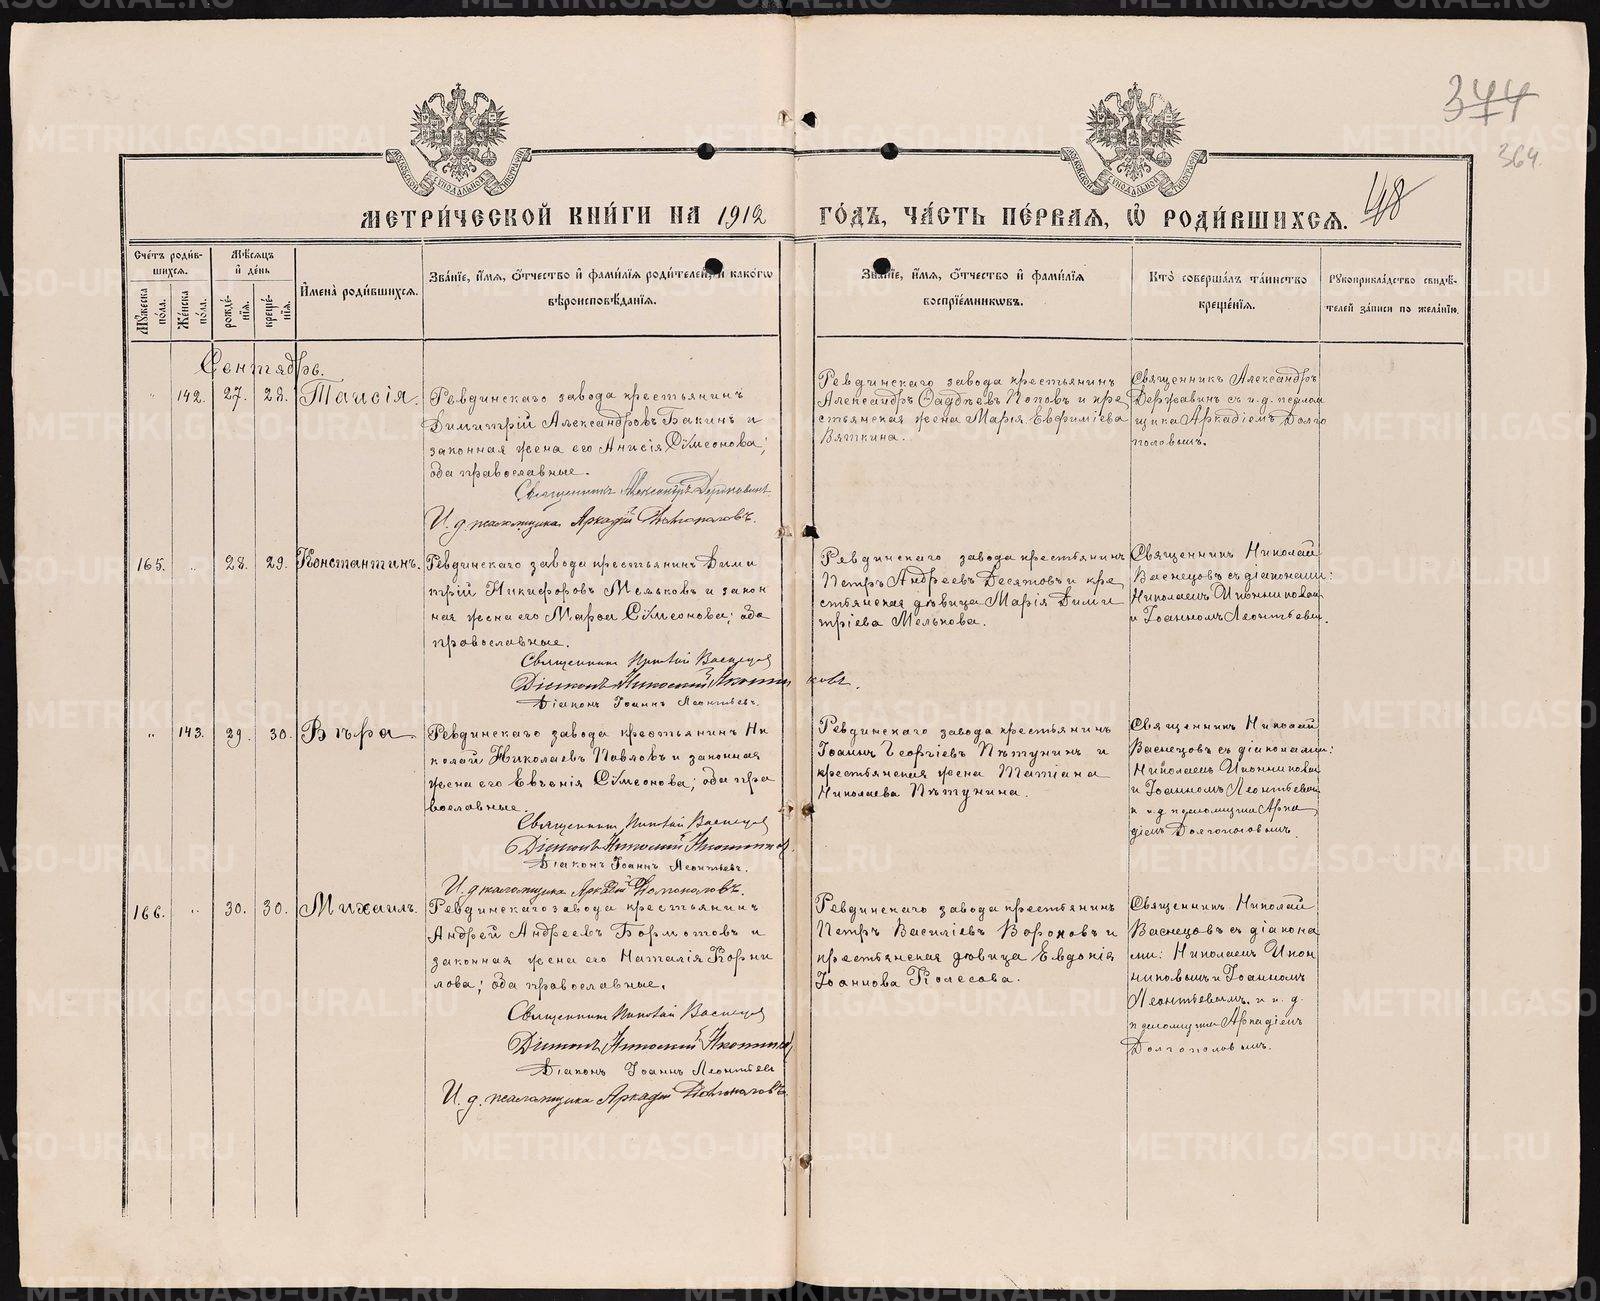 344
364.
48
МОСКОВСКОЙ СѴНОДАЛЬНОЙ ТИПОГРАФІИ
МОСКОВСКОЙ СѴНОДАЛЬНОЙ ТИПОГРАФІИ
МЕТРИ́ЧЕСКОЙ КНИ́ГИ НА 1912 ГО́ДЪ, ЧА́СТЬ ПЕ́РВАЯ, Ѡ҆ РОДИ́ВШИХСЯ.
Сче́тъ роди́в-
шихся.
Мꙋ́жеска по́ла.
Же́нска по́ла.
Мѣ́сяцъ
и҆ де́нь
рожде́нїя.
креще́нїя.
И҆мена̀ роди́вшихся.
Зва́нїе, и҆́мя, ѻ҆́тчество и҆ фами́лїя роди́телей, и҆ како́гѡ
вѣроисповѣ́данїя.
Зва́нїе, и҆́мя, ѻ҆́тчество и҆ фами́лїя
воспрїе́мникѡвъ.
Кто̀ соверша́лъ та́инство
креще́нїя.
Рꙋкоприкла́дство свидѣ́-
телей за́писи по жела́нїю.
Сентябрь.
" 142. 27. 28. Таисія.
Ревдинскаго завода крестьянинъ
Димитрій Александровъ Бакинъ и
законная жена его Анисія Сѵмеонова;
оба православные.
Священникъ Александръ Державинъ
И. д. псаломщика Аркадій Долгополовъ.
Ревдинскаго завода крестьянинъ
Александръ Ѳаддѣевъ Поповъ и кре
стьянская жена Марія Евфиміева
Вяткина.
Священникъ Александръ
Державинъ съ и. д. псалом
щика Аркадіемъ Долго
половымъ.
165. " 28. 29. Константинъ.
Ревдинскаго завода крестьянинъ Дими
трій Никифоровъ Мельковъ и закон
ная жена его Марѳа Сѵмеонова; оба
православные.
Священникъ Николай Васнецовъ
Діаконъ Николай Иконниковъ.
Діаконъ Іоаннъ Леонтьевъ.
Ревдинскаго завода крестьянинъ
Петръ Андреевъ Десятовъ и кре
стьянская дѣвица Марія Дими
тріева Мелькова.
Священникъ Николай
Васнецовъ съ діаконами:
Николаемъ Иконниковым
и Іоанномъ Леонтьевым.
" 143. 29. 30. Вѣра
Ревдинскаго завода крестьянинъ Ни
колай Николаевъ Павловъ и законная
жена его Евгенія Сѵмеонова; оба пра
вославные.
Священникъ Николай Васнецов
Діаконъ Николай Иконников
Діаконъ Іоаннъ Леонтьевъ.
И. д. псаломщика Аркадій Долгополовъ.
Ревдинскаго завода крестьянинъ
Іоаннъ Георгіевъ Пѣтунинъ и
крестьянская жена Татіана
Николаева Пѣтунина.
Священникъ Николай
Васнецовъ съ діаконами:
Николаемъ Иконниковым
и Іоанномъ Леонтьевым
и и. д. псаломщика Арка
діемъ Долгополовымъ.
166. " 30. 30. Михаилъ.
Ревдинскаго завода крестьянинъ
Андрей Андреевъ Бормотовъ и
законная жена его Наталія Корни
лова; оба православные.
Священникъ Николай Васнецов
Діаконъ Николай Иконников
Діаконъ Іоаннъ Леонтьевъ
И. д. псаломщика Аркадій Долгополовъ.
Ревдинскаго завода крестьянинъ
Петръ Василіевъ Вороновъ и
крестьянская дѣвица Евдокія
Іоаннова Колесова.
Священникъ Николай
Васнецовъ съ діакона
ми: Николаемъ Икон
никовымъ и Іоанномъ
Леонтьевымъ. и и. д.
псаломщика Аркадіемъ
Долгополовымъ.
METRIKI.GASO-URAL.RU